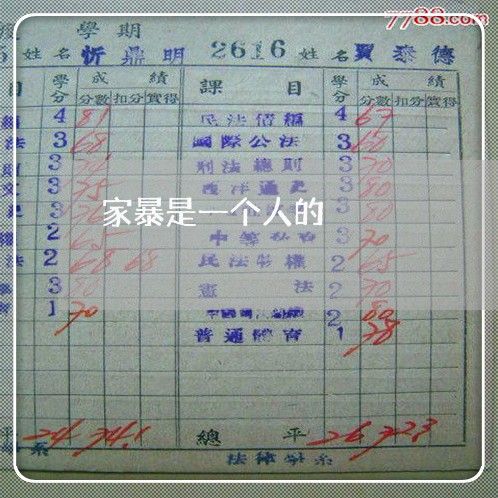 7788.com
學期
姓名 忻鼎明 2616 姓名 賈泰德
目 學分 成績 課目 學分 成績
分數 扣分 實得 分數 扣分 實得
4 81 民法債編 4 67
法 3 68 國際公法 3 60
3 刑法總則 3 70
3 75 西洋通史 3 80
3 3 80
家暴是一个人的
2 65 3 70
法 2 68 68 民法物權 2 65
3 80 憲法 2 70
1 70 2 80
普通體育 1 78
平 24 74.1 總平 26 72.3
系 法律學系